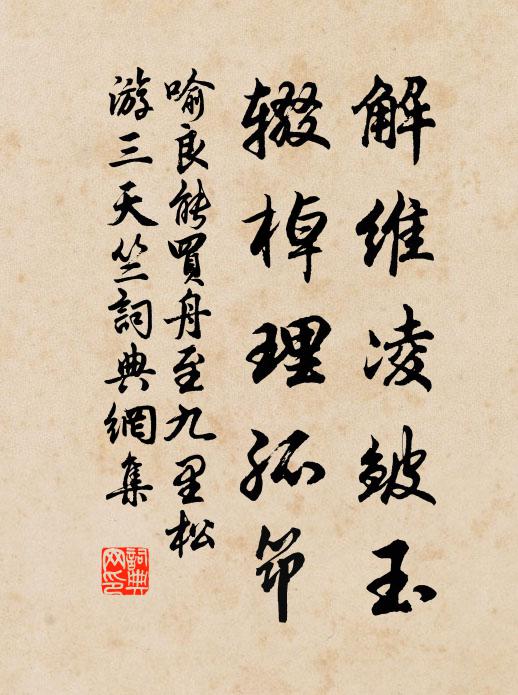 解维凌皱玉
辍棹理孤筇
喻良能買舟至九里松
游三天竺詞典網集
詞典网印